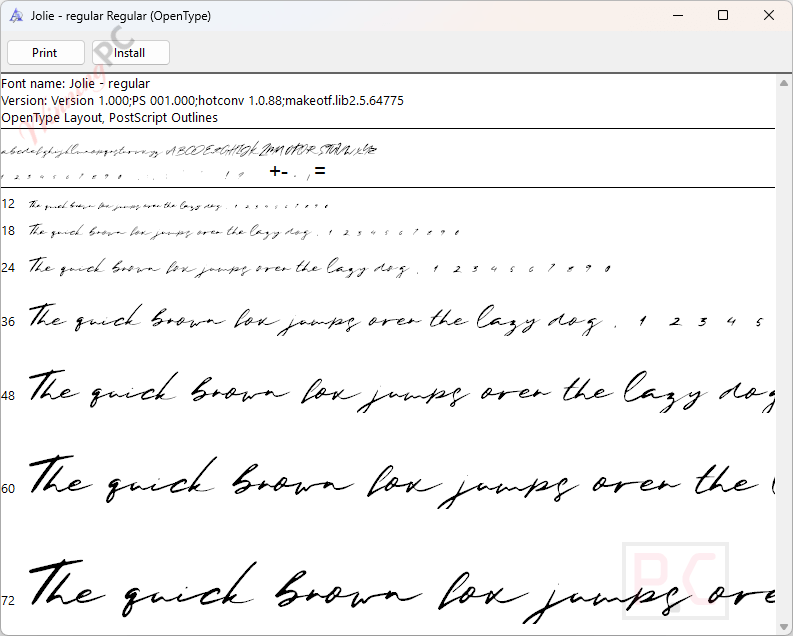 Jolie - regular Regular (OpenType)
Print Install
WinningPC
Font name: Jolie - regular
Version: Version 1.000;PS 001.000;hotconv 1.0.88;makeotf.lib2.5.64775
OpenType Layout, PostScript Outlines
abcdefghijklmnopqrstuvwxyz ABCDEFGHIJKLMNOPQRSTUVWXYZ
1 2 3 4 5 6 7 8 9 0 +- =
12 The quick brown fox jumps over the lazy dog. 1 2 3 4 5 6 7 8 9 0
18 The quick brown fox jumps over the lazy dog. 1 2 3 4 5 6 7 8 9 0
24 The quick brown fox jumps over the lazy dog. 1 2 3 4 5 6 7 8 9 0
36 The quick brown fox jumps over the lazy dog. 1 2 3 4 5
48 The quick brown fox jumps over the lazy dog
60 The quick brown fox jumps over the
72 The quick brown fox jumps ove
PC